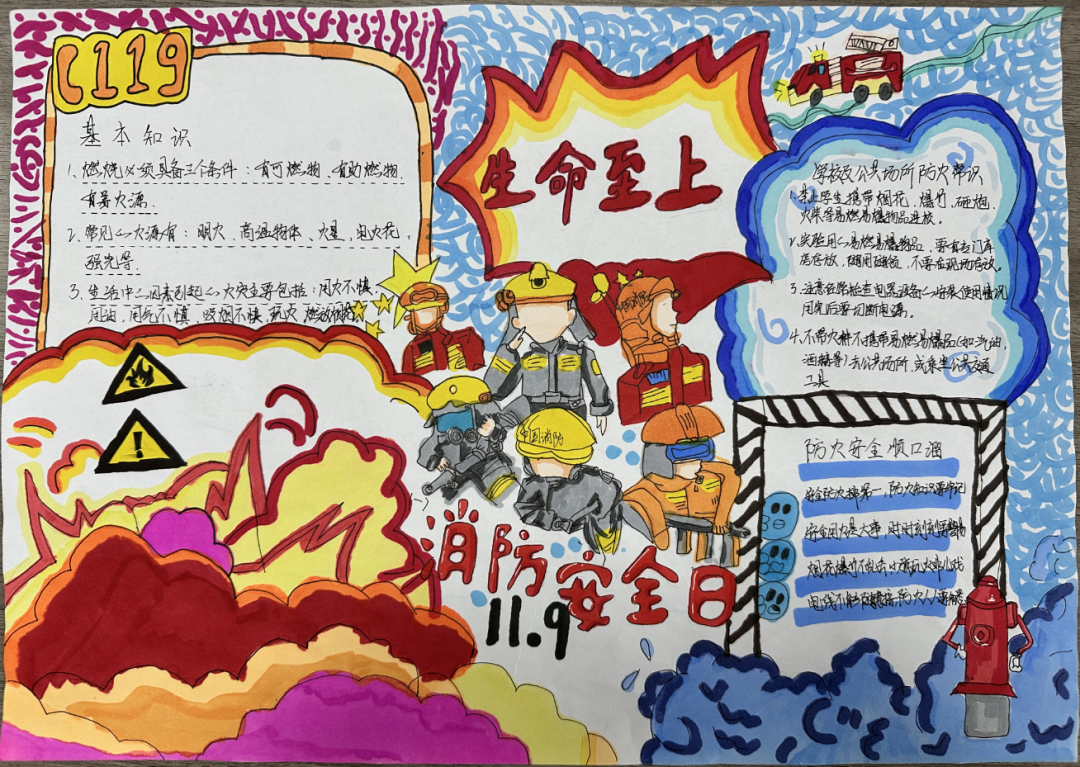 119
基本知识
1、燃烧必须具备三个条件：有可燃物、有助燃物、
有着火源.
2、常见的火源有：明火、高温物体、火星、电火花，
强光等.
3、生活中的因素引起的火灾主要包括：用火不慎，
用油，用气不慎，吸烟不慎，玩火，燃放
生命至上
学校及公共场所防火常识
1.禁止学生携带烟花、爆竹、砸炮，
火柴等易燃易爆物品进校。
2.实验用的易燃易爆物品，要有专门库
房存放，随用随领，不要在现场存放。
3.注意经常检查电器设备的安装使用情况
用完后要切断电源。
4.不带火种不携带易燃易爆品(如汽油，
酒精等)去公共场所，或乘坐公共交通
工具
中国消防
消防安全日
11.9
防火安全顺口溜
安全防火挂第一，防火知识要牢记
安全用火是大事，时时刻刻要
烟花爆竹不乱
电线不 防火人人